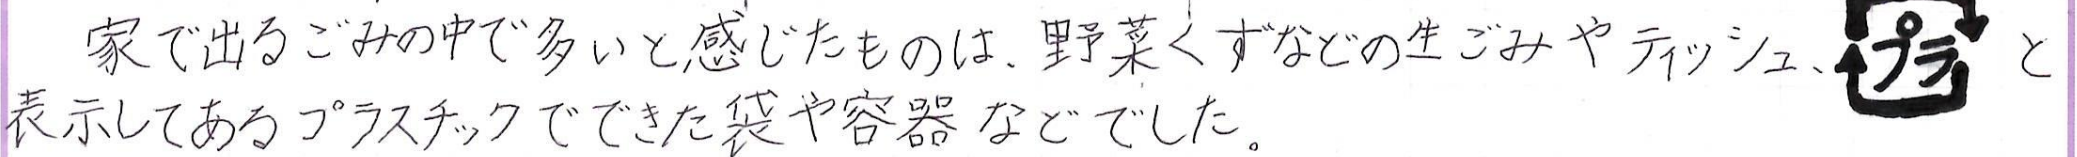 家で出るごみの中で多いと感じたものは、野菜くずなどの生ごみやティッシュ、プラと
表示してあるプラスチックでできた袋や容器などでした。